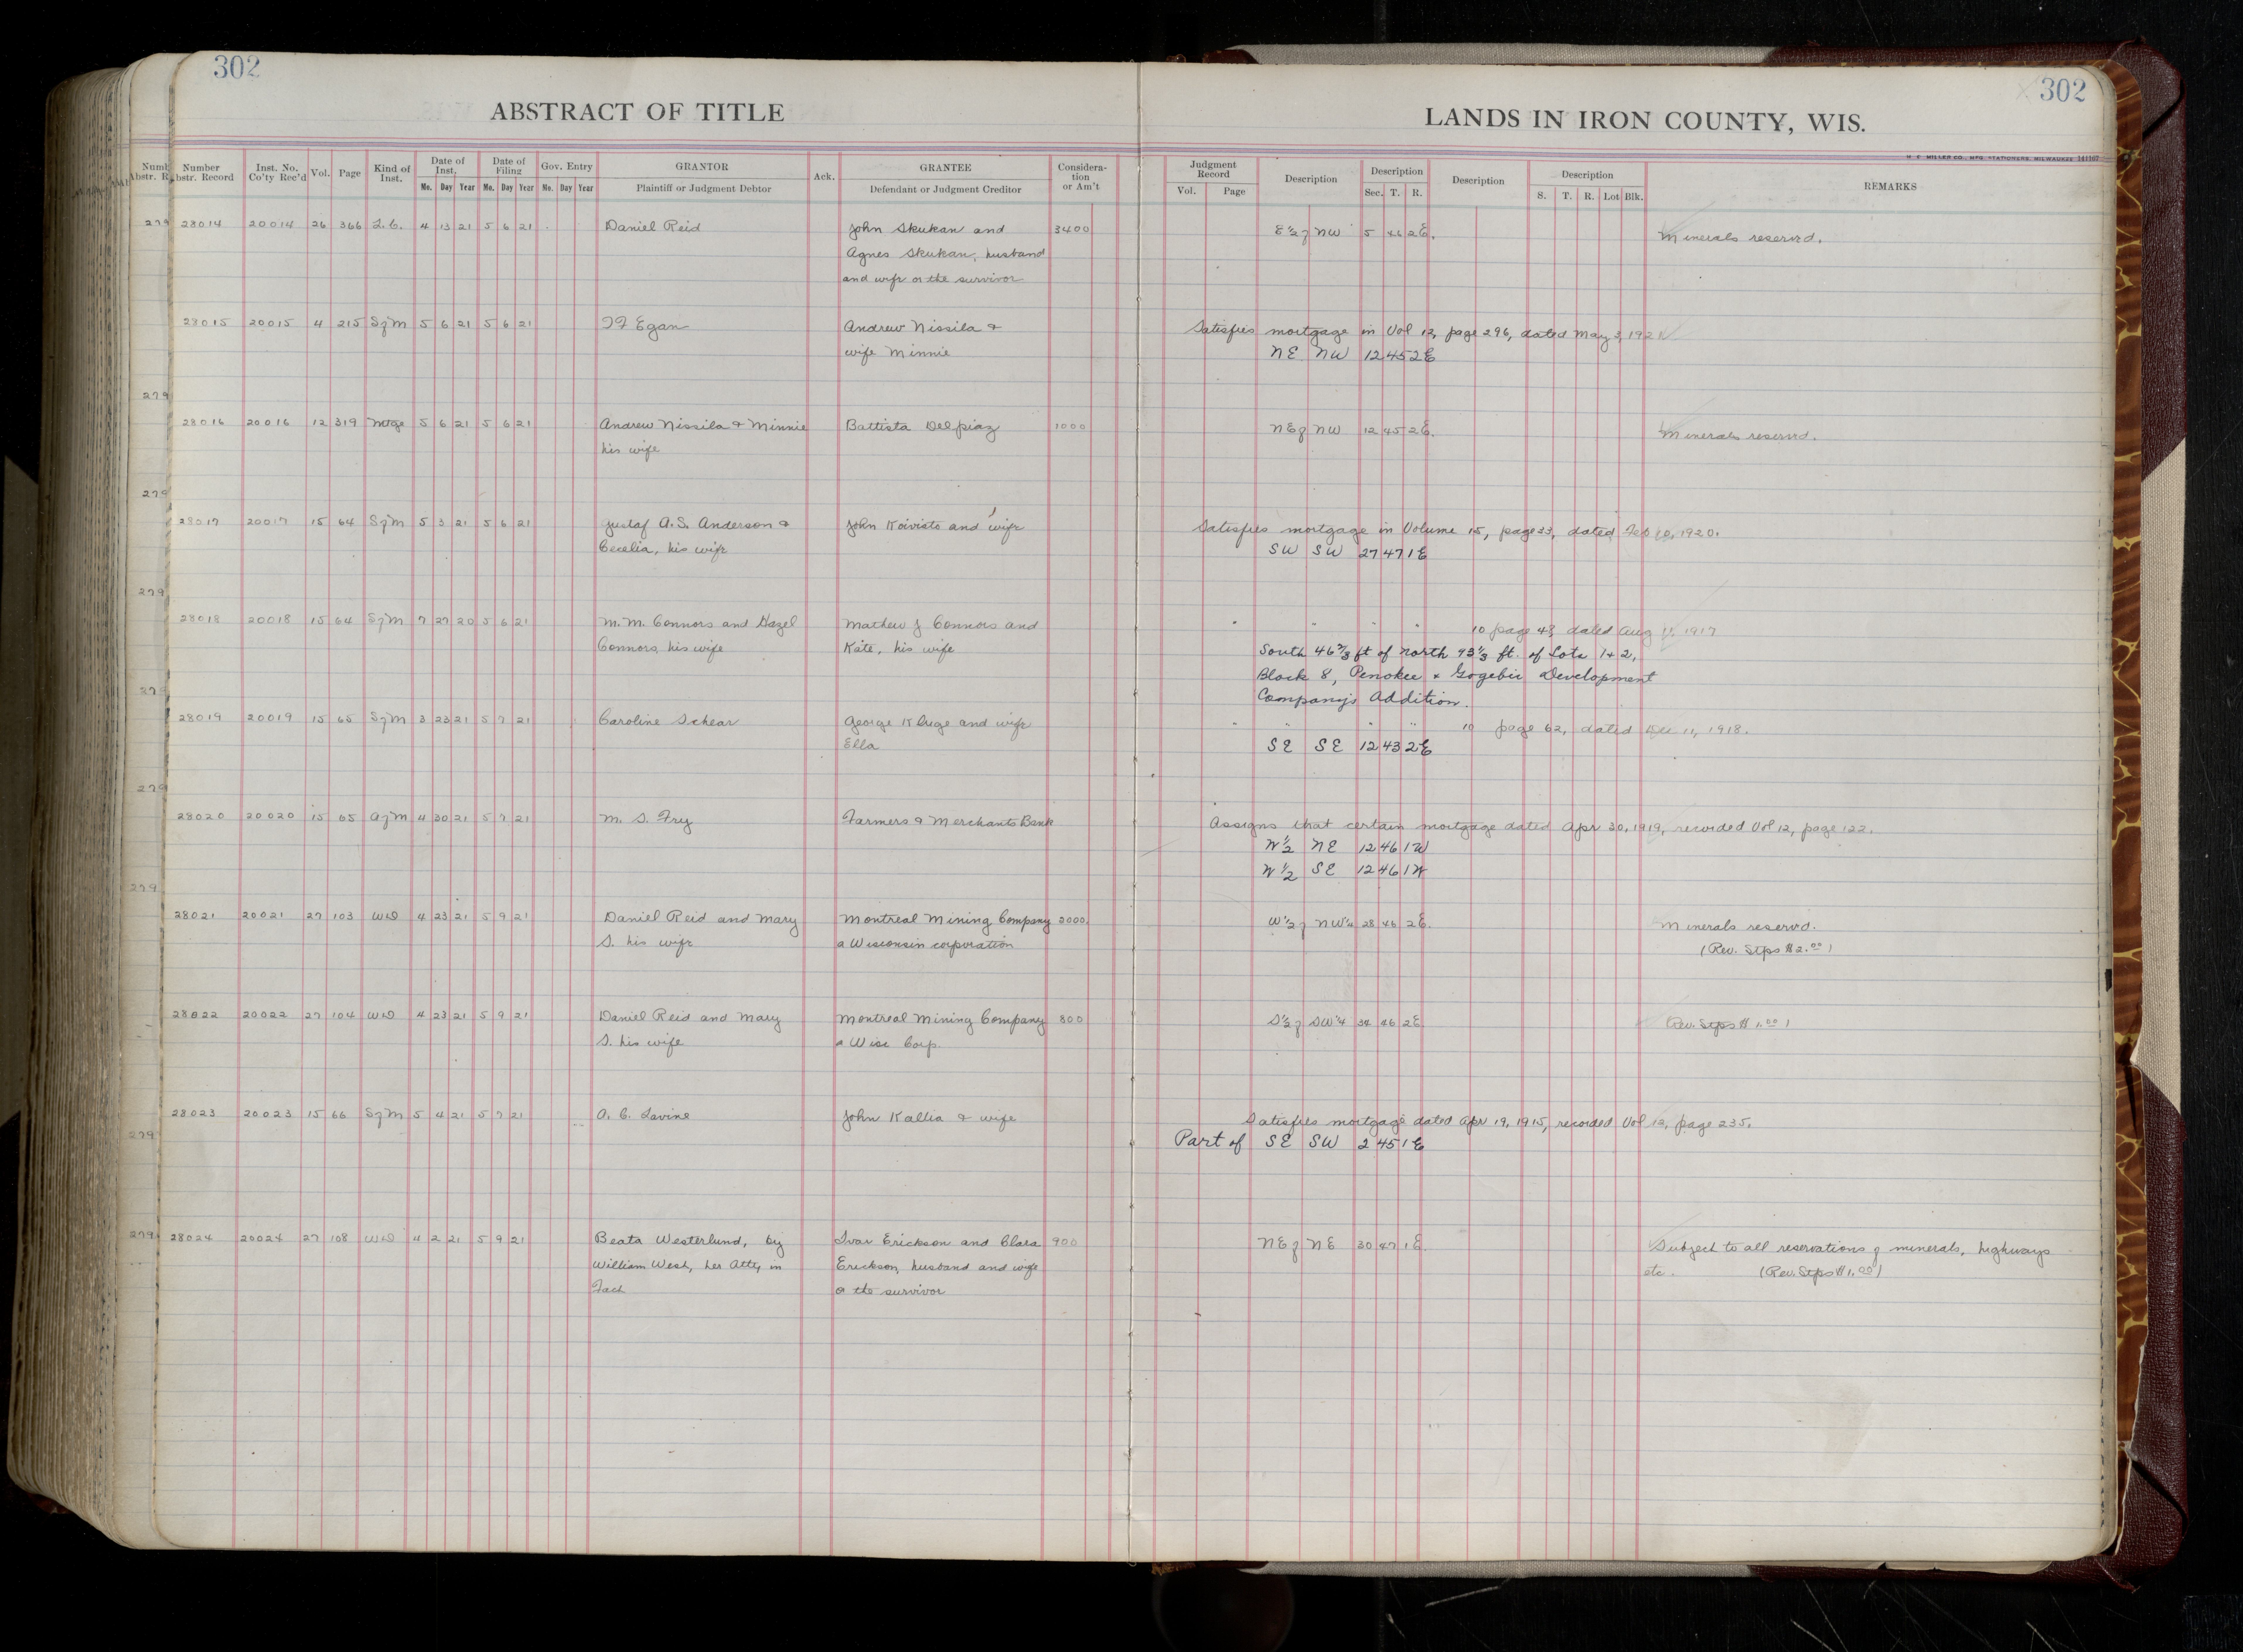 302
302
ABSTRACT OF TITLE
LANDS IN IRON COUNTY, WIS.
H. C. MILLER CO., MFG. STATIONERS, MILWAUKEE
Number Abstr. Record Inst. No. Co'ty Rec'd Vol. Page Kind of Inst. Date of Inst. Mo. Day Year Date of Filing Mo. Day Year Gov. Entry No. Day Year GRANTOR Plaintiff or Judgment Debtor Ack. GRANTEE Defendant or Judgment Creditor Considera-tion or Am't
Judgment Record Vol. Page Description Description Sec. T. R. Description Description S. T. R. Lot Blk. REMARKS
28014 20014 26 366 L.C. 4 13 21 5 6 21 Daniel Reid John Skukan and 3400 E 1/2 of NW 5 46 2E. Minerals reserved.
Agnes Skukan, husband
and wife or the survivor
28015 20015 4 215 S of M 5 6 21 5 6 21 Egan Andrew Nissila & Satisfies mortgage in Vol 12, page 296, dated May 3, 192
wife Minnie NE NW 12 45 2E
28016 20016 12 319 Mtge 5 6 21 5 6 21 Andrew Nissila & Minnie Battista Delpiaz 1000 NE of NW 12 45 2E. Minerals reserved.
his wife
28017 20017 15 64 S of M 5 3 21 5 6 21 Gustaf A.S. Anderson & John Koivisto and wife Satisfies mortgage in Volume 15, page 33, dated Feb 10, 1920.
Cecelia, his wife SW SW 27 47 1E
28018 20018 15 64 S of M 7 27 20 5 6 21 M. M. Connors and Hazel Mathew J Connors and " " " " 10 page 43, dated Aug 1917
Connors, his wife Kate, his wife South 46 2/3 ft of North 93 1/3 ft. of Lots 1 + 2,
Block 8, Penokee & Gogebic Development
Company's Addition.
28019 20019 15 65 S of M 3 23 21 5 7 21 Caroline Schear George Kluge and wife " " " " 10 page 62, dated Dec 11, 1918.
Ella SE SE 12 43 2E
28020 20020 15 65 A of M 4 30 21 5 7 21 M. S. Fry Farmers & Merchants Bank Assigns that certain mortgage dated Apr 30, 1919, recorded Vol 12, page 122.
W 1/2 NE 12 46 1W
W 1/2 SE 12 46 1W
28021 20021 27 103 WD 4 23 21 5 9 21 Daniel Reid and Mary Montreal Mining Company 2000 W 1/2 of NW 1/4 28 46 2E. Minerals reserved.
S. his wife a Wisconsin corporation (Rev. Stps $2.00)
28022 20022 27 104 WD 4 23 21 5 9 21 Daniel Reid and Mary Montreal Mining Company 800 S 1/2 of SW 1/4 34 46 2E (Rev. Stps $1.00)
S. his wife a Wisc Corp.
28023 20023 15 66 S of M 5 4 21 5 7 21 A. C. Lavine John Kallia & wife Satisfies mortgage dated Apr 19, 1915, recorded Vol 12, page 235.
Part of SE SW 2 45 1E
28024 20024 27 108 WD 4 2 21 5 9 21 Beata Westerlund, by Ivar Erickson and Clara 900 NE of NE 30 47 1E. Subject to all reservations of minerals, highways
William West, her Atty in Erickson, husband and wife etc. (Rev. Stps $1.00)
Fact or the survivor